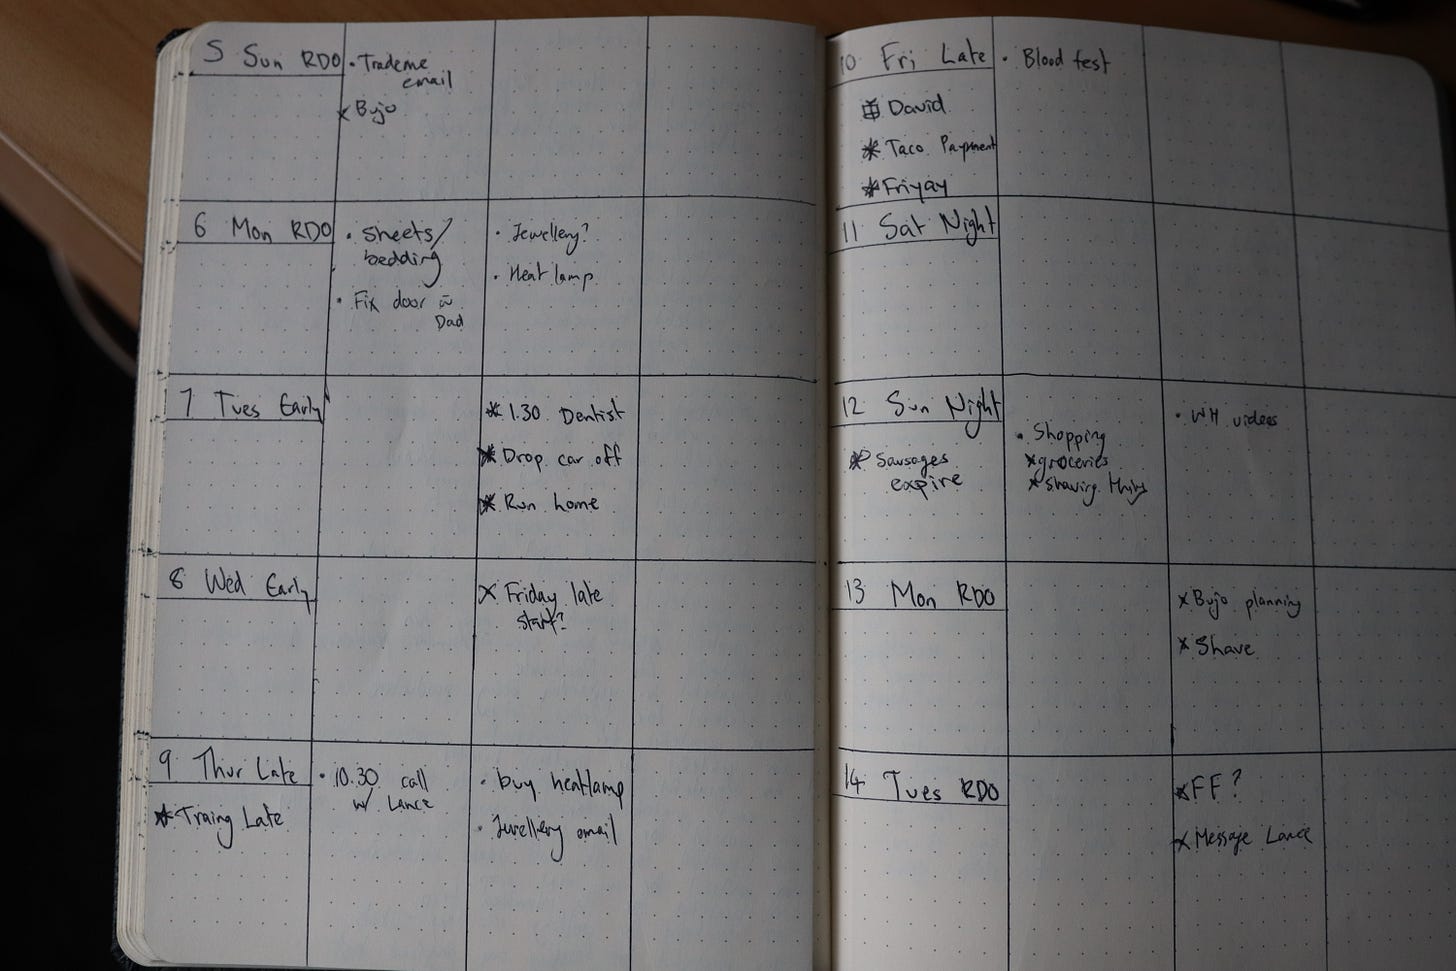 5 Sun RDO
• Trademe
email
x Bujo
6 Mon RDO
• Sheets/
bedding
• Fix door w̄
Dad
• Jewellery?
• Heat lamp
7 Tues Early
* 1.30 Dentist
* Drop car off
* Run home
8 Wed Early
x Friday late
start?
9 Thur Late
* Traing Late
• 10.30 call
w/ Lance
• buy heatlamp
• Jewellery email
10 Fri Late
David
* Taco Payment
* Friyay
• Blood test
11 Sat Night
12 Sun Night
* Sausages
expire
• Shopping
x groceries
x shaving thing
• WH videos
13 Mon RDO
x Bujo planning
x Shave
14 Tues RDO
x FF?
x Message Lance